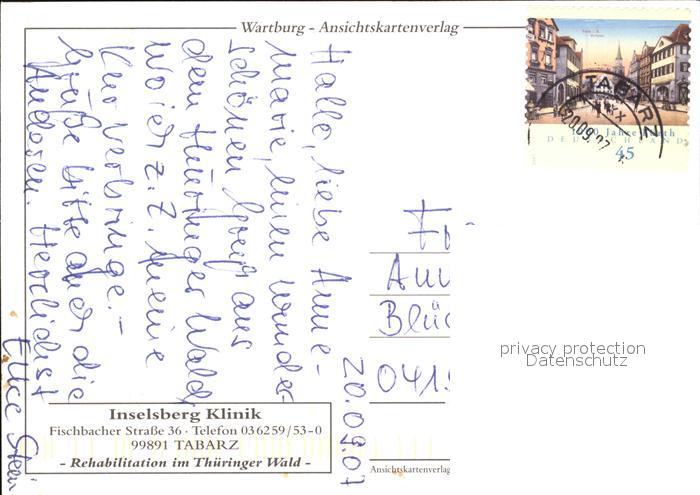 Wartburg - Ansichtskartenverlag
TABARZ
20.09.07
Jahre Fürth
DEUTSCHLAND
45
20.09.07
Hallo, liebe Anne-
Marie, einen wunder-
schönen Gruß aus
dem Thüringer Wald
wo ich z. Z. meine
Kur verbringe. -
Grüße bitte auch die
Anderen. Herzlichst
Elke Stein
Ann
Blüc
041
privacy protection
Datenschutz
Inselsberg Klinik
Fischbacher Straße 36 · Telefon 036259/53-0
99891 TABARZ
- Rehabilitation im Thüringer Wald -
Ansichtskartenverlag